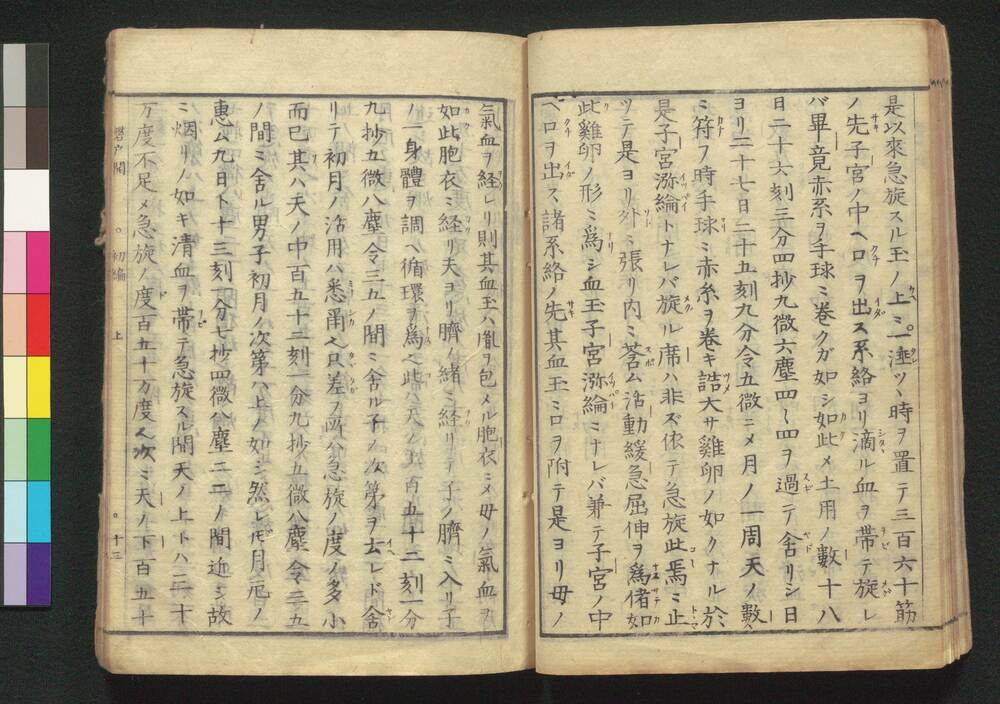 是以來急旋スル玉ノ上ミ一滴ツヽ時ヲ置テ三百六十筋
ノ先子宮ノ中ヘロヲ出ス系絡ヨリ滴ル血ヲ帶テ旋レ
バ畢竟赤系ヲ手球ミ巻クガ如シ如此メ土用ノ數十八
日二十六刻三分四抄九微六塵四〻四ヲ過テ舍リシ日
ヨリ二十七日二十五刻九分令五微ニメ月ノ一周天ノ數
ミ符フ時手球ミ赤糸ヲ巻キ詰大サ雞卵ノ如クナル於
是子宮滁綸トナレバ旋ル席ハ非ズ依テ急旋此焉ミ止
ツテ是ヨリ外ミ張リ内ミ莟ム活動緩急屈伸ヲ爲偖如
此雞卵ノ形ミ爲シ血玉子宮滁綸ミナレバ兼テ子宮ノ中
ヘロヲ出ス諸系絡ノ先其血玉ミロヲ附テ是ヨリ毋ノ
氣血ヲ経レリ則其血玉ハ胤ヲ包メル胞衣ミメ毋ノ氣血ヲ
如此胞衣ミ経リ夫ヨリ臍ノ緒ミ経リテ子ノ臍ミ入リ子
ノ一身體ヲ調ヘ循環ヲ爲ヘ此ハ天ノ 百五十二刻一分
九抄五微八塵令三五ノ間ミ舍ル子ノ次第ヲ云レド舍
リテ初月ノ活用ハ悉甬ヘ只差フ所分急旋ノ度ノ多小
而已其ハ天ノ中百五十二刻一分九抄五微八塵令三五
ノ間ミ舍ル男子初月ノ次第ハ上ノ如シ然レ𪜈月厄ノ
惠ム九日ト十三刻一分七抄四微 塵二二ノ間近シ故
ミ烟リノ如キ清血ヲ帯テ急旋スル間天ノ上トハ二十
万度不足メ急旋ノ度百五十万度ヘ次ミ天ノ下百五十
初編
上
十三